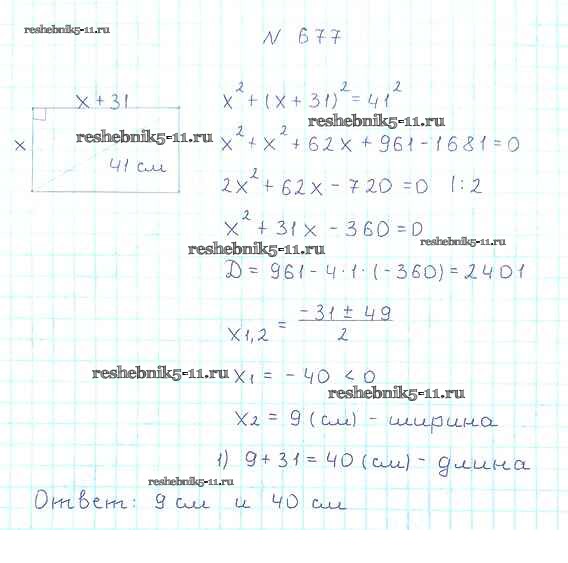 reshebnik5-11.ru
N 677
x + 31
x² + (x + 31)² = 41²
reshebnik5-11.ru
x
reshebnik5-11.ru
x² + x² + 62x + 961 - 1681 = 0
41 см
2x² + 62x - 720 = 0 |:2
x² + 31x - 360 = 0
reshebnik5-11.ru
reshebnik5-11.ru
D = 961 - 4·1·(-360) = 2401
x1,2 = (-31 ± 49)/2
reshebnik5-11.ru
x1 = -40 < 0
reshebnik5-11.ru
x2 = 9 (см) - ширина
1) 9 + 31 = 40 (см) - длина
reshebnik5-11.ru
Ответ: 9 см и 40 см